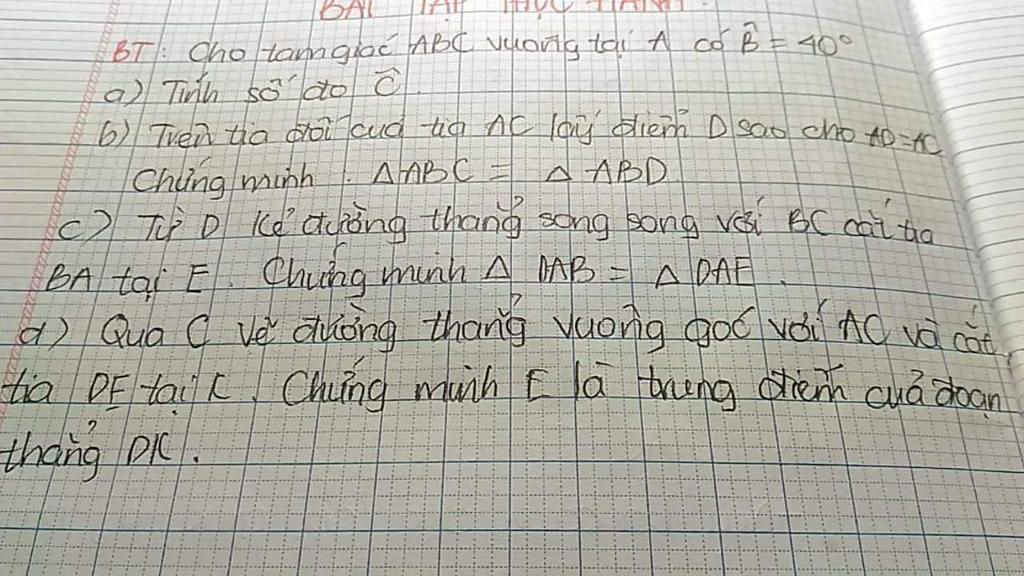 BÀI TẬP THỰC HÀNH.
BT: Cho tam giác ABC vuông tại A có B̂ = 40°
a) Tính số đo Ĉ.
b) Trên tia đối của tia AC lấy điểm D sao cho AD=AC
Chứng minh : Δ ABC = Δ ABD
c) Từ D Kẻ đường thẳng song song với BC cắt tia
BA tại E. Chứng minh Δ DAB = Δ DAE.
d) Qua C vẽ đường thẳng vuông góc với AC và cắt
tia DE tại K. Chứng minh E là trung điểm của đoạn
thẳng DK.